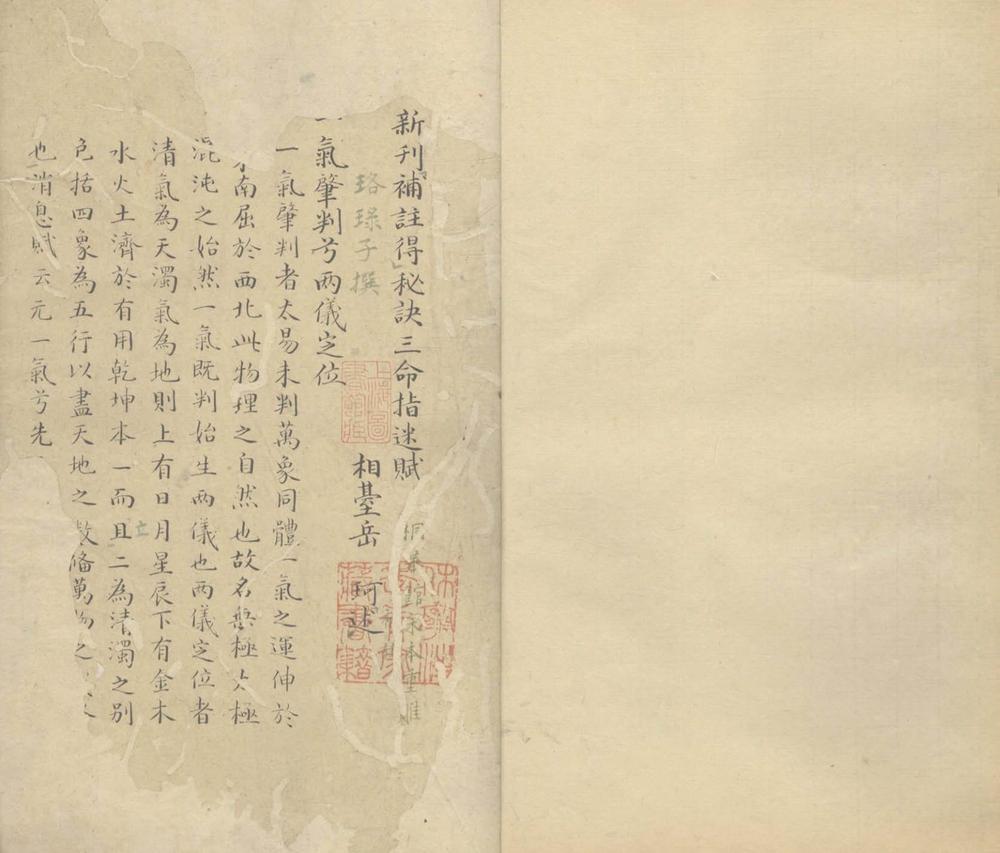 新刊補註得秘訣三命指迷賦
珞琭子撰
相臺岳珂述
一氣肇判兮兩儀定位
一氣肇判者太易未判萬象同體一氣之運伸於
南屈於西北此物理之自然也故名無極太極
混沌之始然一氣既判始生两儀也两儀定位者
清氣為天濁氣為地則上有日月星辰下有金木
水火土濟於有用乾坤本一而且二為清濁之别
包括四象為五行以盡天地之數俻萬物之
也消息賦云元一氣兮先
上海圖書館藏